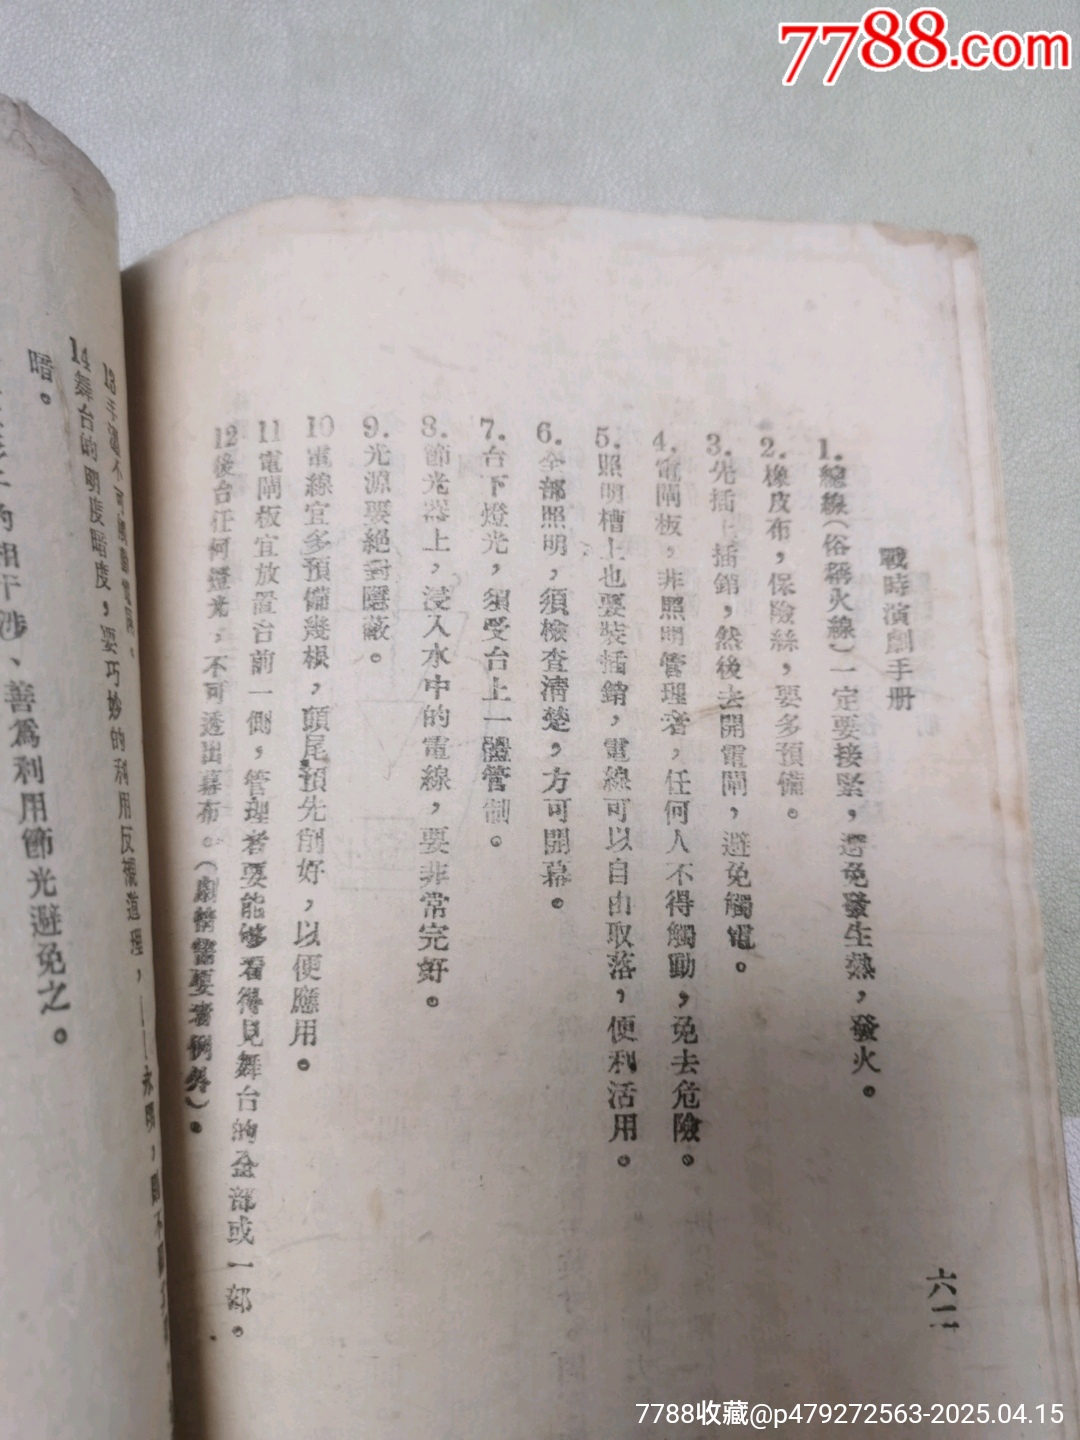 7788.com
戰時演劇手册
1.總線(俗稱火線)一定要接緊，避免發生熱，發火。
2.橡皮布，保險絲，要多預備。
3.先插上插銷，然後去開電閘，避免觸電。
4.電閘板，非照明管理者，任何人不得觸動，免去危險。
5.照明槽上也要裝插銷，電線可以自由取落，便利活用。
6.全部照明，須檢查清楚，方可開幕。
7.台下燈光，須受台上一體管制。
8.節光器上，浸入水中的電線，要非常完好。
9.光源要絕對隱蔽。
10電線宜多預備幾根，頭尾預先削好，以便應用。
11電閘板宜放置台前一側，管理者要能够看得見舞台的全部或一部。
12後台任何燈光，不可透出幕布。(劇情需要者例外)。
六二
13手
不可
14舞台的明度暗度，要巧妙的利用反襯道理，
暗。
的相干涉、善爲利用節光避免之。
7788收藏@p479272563-2025.04.15